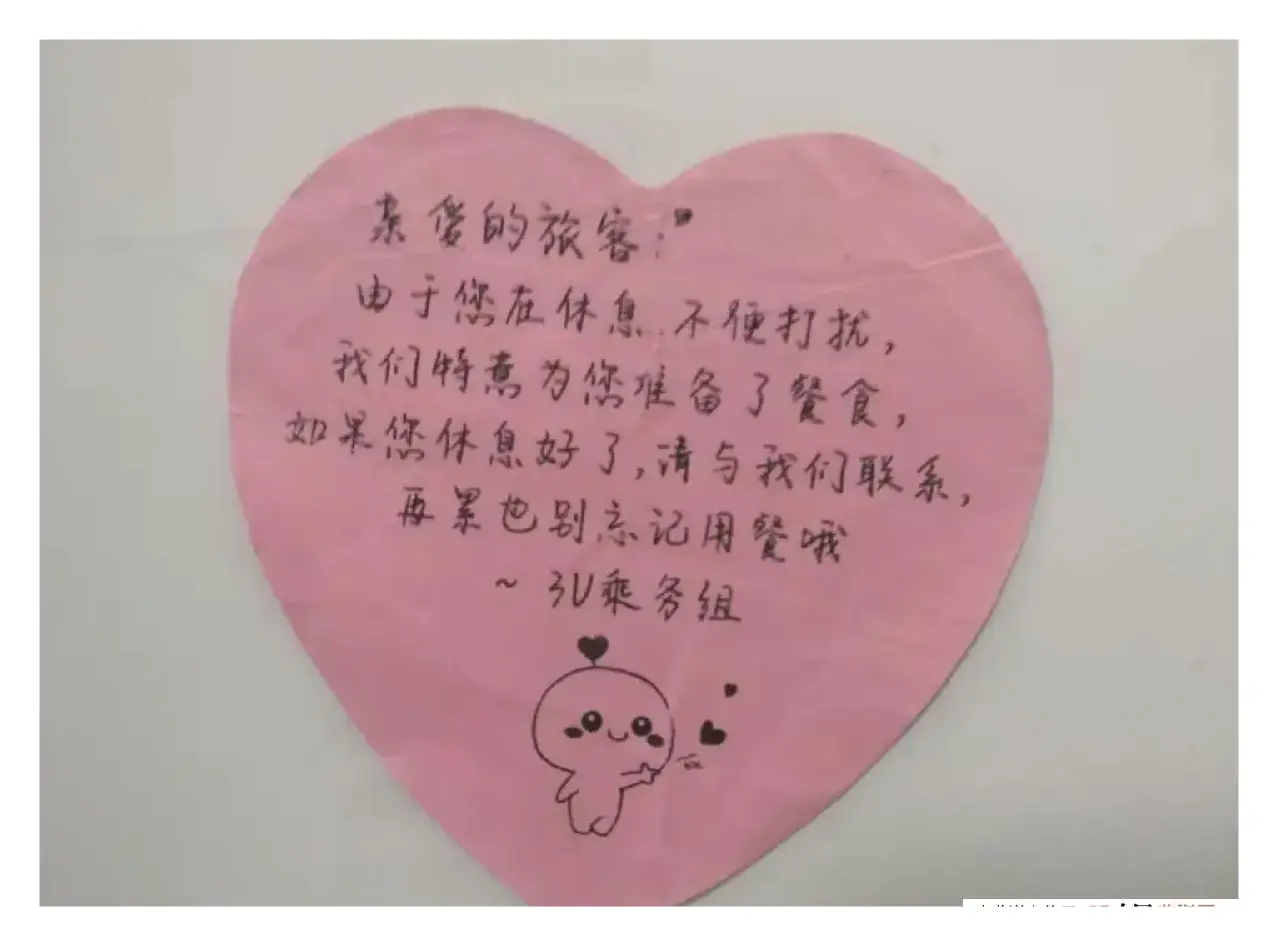 亲爱的旅客:
由于您在休息 不便打扰,
我们特意为您准备了餐食,
如果您休息好了,请与我们联系,
再累也别忘记用餐哦
~ 3U乘务组